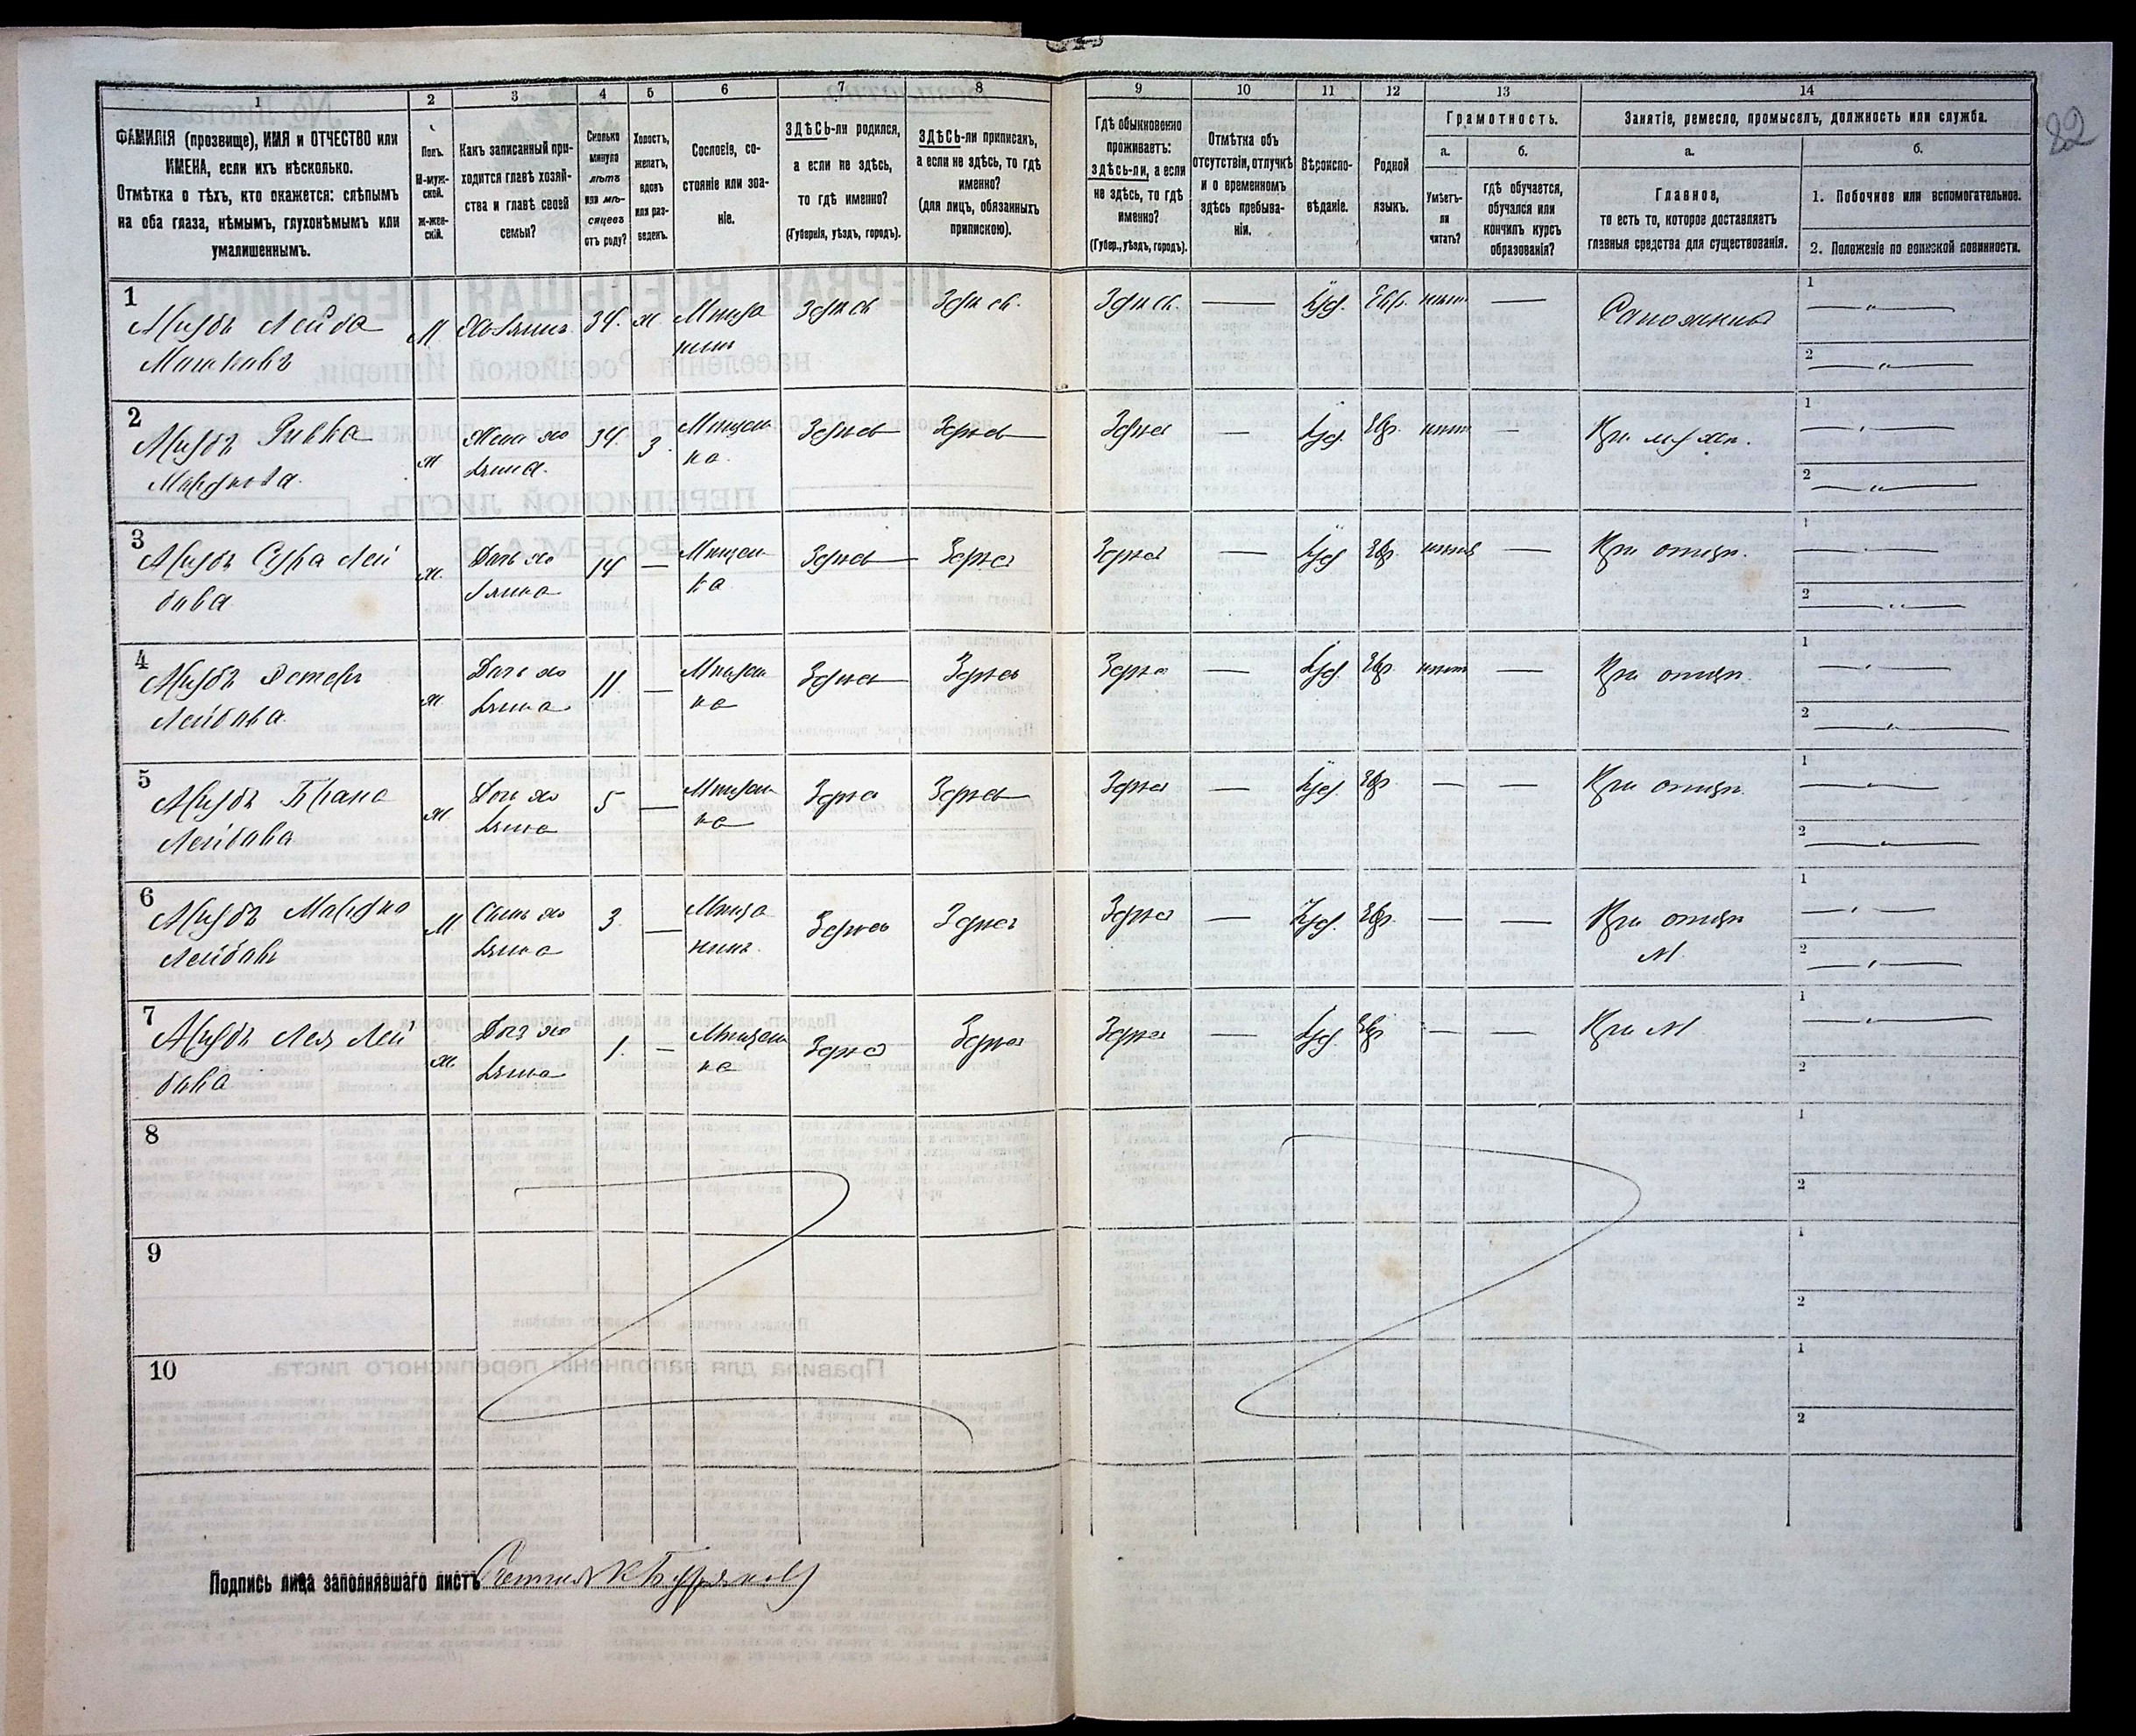 22
1 2 3 4 5 6 7 8 9 10 11 12 13 14
ФАМИЛІЯ (прозвище), ИМЯ и ОТЧЕСТВО или
ИМЕНА, если ихъ нѣсколько.
Отмѣтка о тѣхъ, кто окажется: слѣпымъ
на оба глаза, нѣмымъ, глухонѣмымъ или
умалишеннымъ.
Полъ.
М-муж-
ской.
Ж-жен-
скій.
Какъ записанный при-
ходится главѣ хозяй-
ства и главѣ своей
семьи?
Сколько
минуло
лѣтъ
или мѣ-
сяцевъ
отъ роду?
Холостъ,
женатъ,
вдовъ
или раз-
веденъ.
Сословіе, со-
стояніе или зва-
ніе.
ЗДѢСЬ-ли родился,
а если не здѣсь,
то гдѣ именно?
(Губернія, уѣздъ, городъ).
ЗДѢСЬ-ли приписанъ,
а если не здѣсь, то гдѣ
именно?
(для лицъ, обязанныхъ
припискою).
Гдѣ обыкновенно
проживаетъ:
здѣсь-ли, а если
не здѣсь, то гдѣ
именно?
(Губер., уѣздъ, городъ).
Отмѣтка объ
отсутствіи, отлучкѣ
и о временномъ
здѣсь пребыва-
ніи.
Вѣроиспо-
вѣданіе.
Родной
языкъ.
Грамотность.
а.
Умѣетъ-
ли
читать?
б.
гдѣ обучается,
обучался или
кончилъ курсъ
образованія?
Занятіе, ремесло, промыселъ, должность или служба.
а.
Главное,
то есть то, которое доставляетъ
главныя средства для существованія.
б.
1. Побочное или вспомогательное.
2. Положеніе по воинской повинности.
1
Лейба
М Хозяинъ 34. ж Мѣща
нинъ
Здѣсь Здѣсь. Здѣсь. — Іуд. Евр. нѣтъ — Сапожникъ
1 — „ —
2 — „ —
2
Ривка
Мордкова.
ж Жена хо
зяина. 34. з. Мѣщан
ка. Здѣсь Здѣсь Здѣсь — Іуд. Евр. нѣтъ — При мужѣ.
1 — „ —
2 — „ —
3
Сура Лей
бова
ж. Дочь хо
зяина 14 — Мѣщан
ка Здѣсь Здѣсь Здѣсь — Іуд. Евр. нѣтъ — При отцѣ.
1 — „ —
2 — „ —
4
Эстеръ
Лейбова.
ж. Дочь хо
зяина 11 — Мѣщан
ка Здѣсь Здѣсь Здѣсь — Іуд. Евр. нѣтъ — При отцѣ.
1 — „ —
2 — „ —
5
Лейбова.
ж. Дочь хо
зяина 5 — Мѣщан
ка Здѣсь Здѣсь Здѣсь — Іуд. Евр. — — При отцѣ.
1 — „ —
2 — „ —
6
Мордко
Лейбовъ
М Сынъ хо
зяина 3. — Мѣща
нинъ. Здѣсь Здѣсь Здѣсь — Іуд. Евр. — — При отцѣ
М.
1 — „ —
2 — „ —
7
Лея Лей
бова
ж. Дочь хо
зяина 1. — Мѣщан
ка Здѣсь Здѣсь Здѣсь — Іуд. Евр. — — При М
1 — „ —
2
8
1
2
9
1
2
10
1
2
Подпись лица заполнявшаго листъ